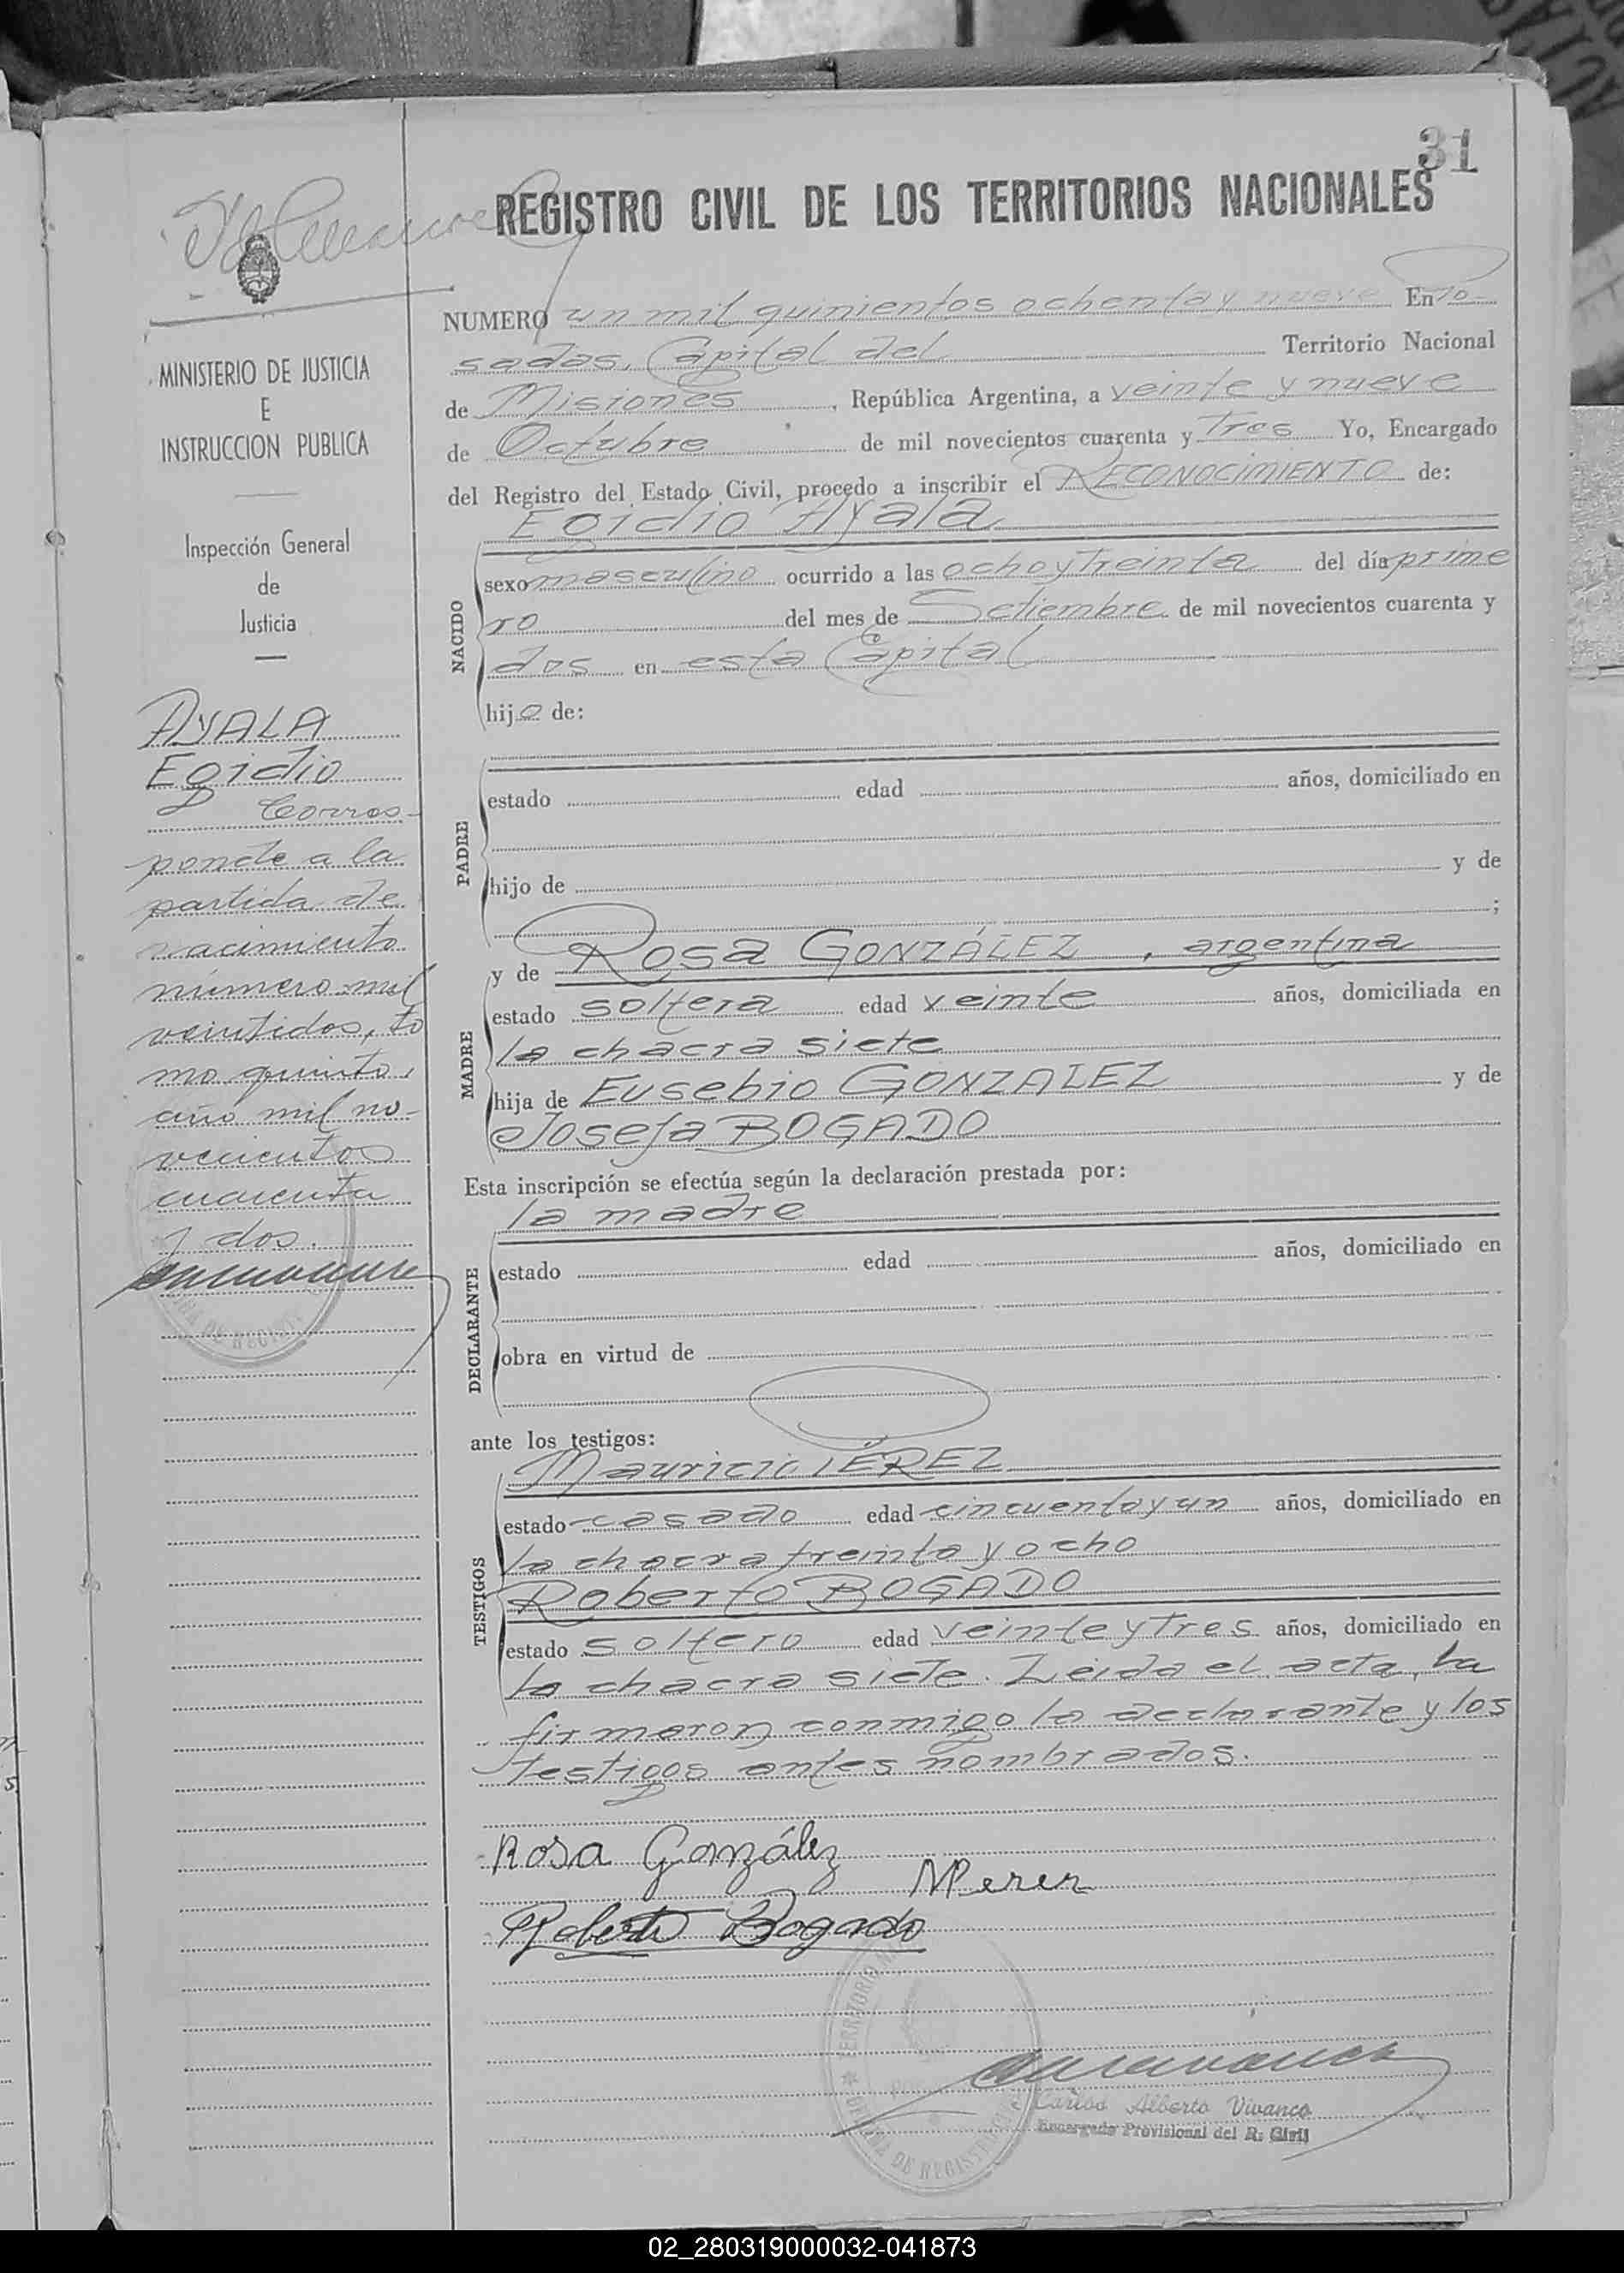 31
REGISTRO CIVIL DE LOS TERRITORIOS NACIONALES
MINISTERIO DE JUSTICIA
E
INSTRUCCION PUBLICA
Inspección General
de
Justicia
AYALA
Egidio
Corres-
ponde a la
partida de
nacimiento
número mil
veintidos, to
mo quinto,
año mil no-
vecientos
cuarenta
y dos.
NUMERO un mil quinientos ochenta y nueve En Po-
sadas, Capital del Territorio Nacional
de Misiones, República Argentina, a veinte y nueve
de Octubre de mil novecientos cuarenta y Tres Yo, Encargado
del Registro del Estado Civil, procedo a inscribir el RECONOCIMIENTO de:
Egidio Ayala
NACIDO
sexo masculino ocurrido a las ocho y treinta del día prime
ro del mes de Setiembre de mil novecientos cuarenta y
dos en esta Capital
hijo de:
PADRE
estado edad años, domiciliado en
hijo de y de
;
MADRE
y de Rosa GONZÁLEZ, argentina
estado soltera edad veinte años, domiciliada en
la chacra siete
hija de Eusebio GONZALEZ y de
Josefa BOGADO
Esta inscripción se efectúa según la declaración prestada por:
la madre
DECLARANTE
estado edad años, domiciliado en
obra en virtud de
ante los testigos:
TESTIGOS
Mauricio PÉREZ
estado casado edad cincuenta y un años, domiciliado en
la chacra treinta y ocho
Roberto BOGADO
estado soltero edad veinte y Tres años, domiciliado en
la chacra siete. Leida el acta, la
firmaron conmigo la declarante y los
testigos antes nombrados.
Rosa González
MPerez
Roberto Bogado
TERRITORIO
OFICINA DE REGISTRO
Carlos Alberto Vivanco
Encargado Provisional del R. Civil
02_280319000032-041873